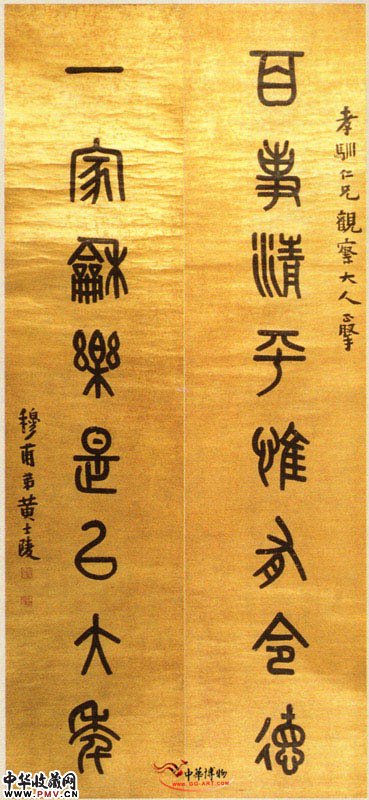 孝馴仁兄觀察大人正擘
百事清平惟有令德
一家龢樂是以大年
穆甫弟黄士陵
中华收藏网
WWW.PMV.CN
中華博物
WWW.GG-ART.COM